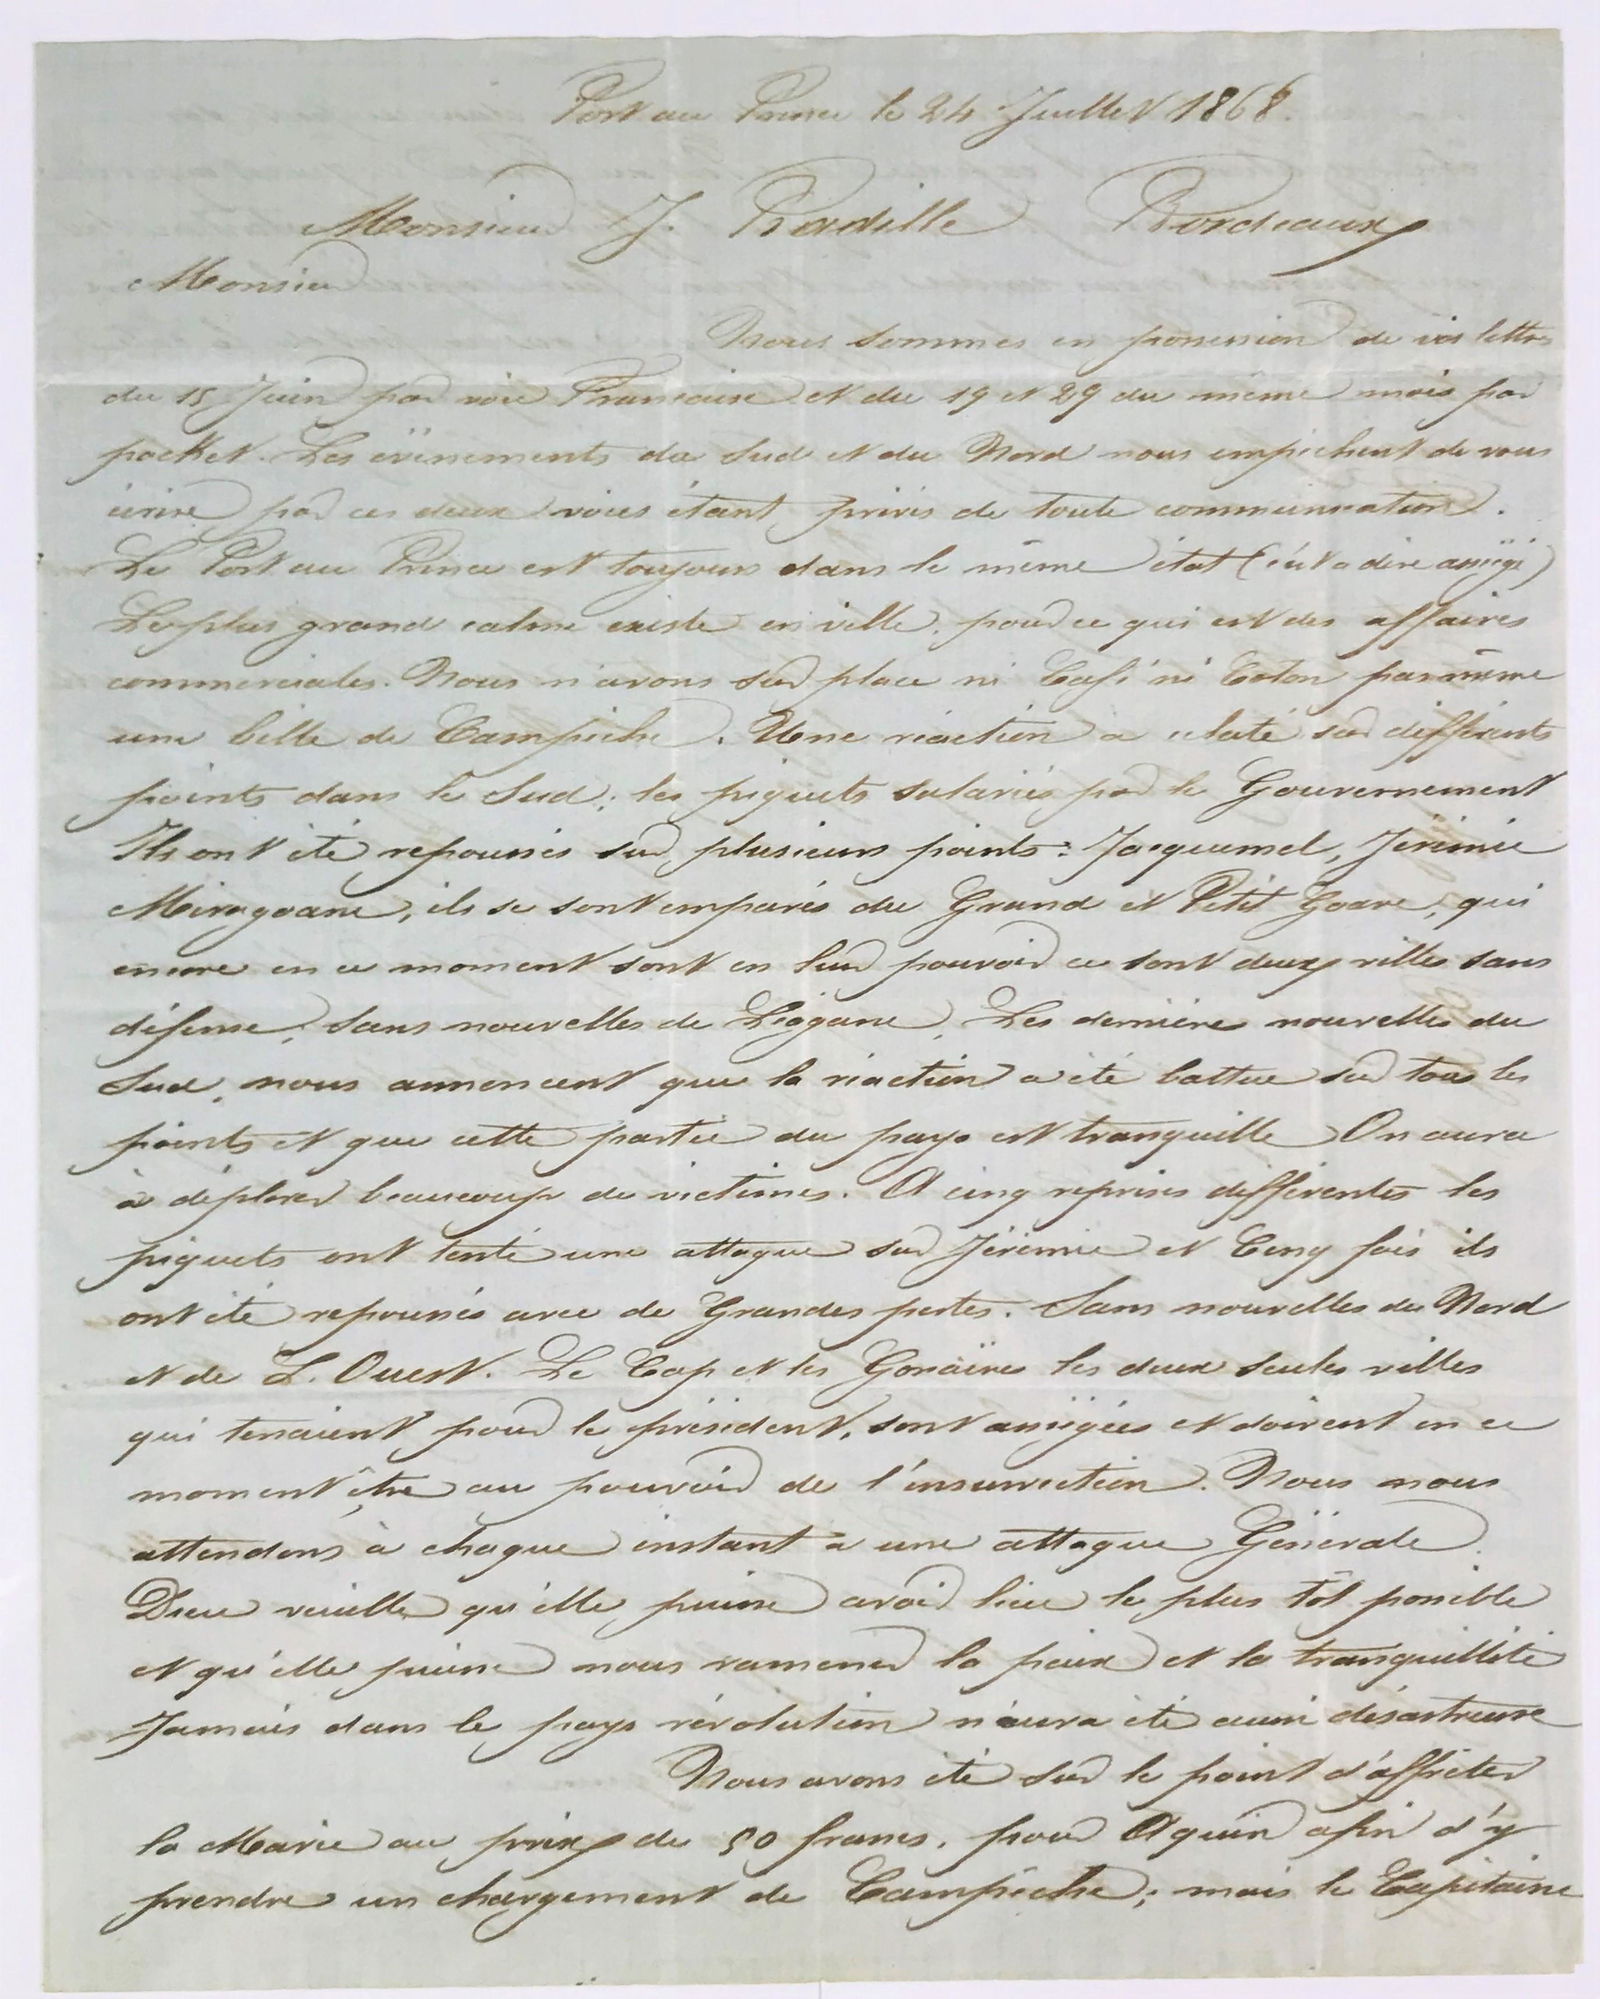 Port au Prince le 24 Juillet 1868.
Monsieur J. Radille Bordeaux
Monsieur
Nous sommes en possession de vos lettres
du 15 Juin par voie Francaise et du 19 et 29 du même mois par
packet. Les évènements du Sud et du Nord nous empêchent de vous
écrire par ces deux voies étant privés de toute communication.
Le Port au Prince est toujours dans le même état (c'est a dire assiégé)
Le plus grand calme existe en ville, pour ce qui est des affaires
commerciales. Nous n'avons sur place ni Café ni Coton pas même
une bille de Campêche. Une réaction a éclaté sur différents
points dans le Sud; les piquets salariés par le Gouvernement
Ils ont été repoussés sur plusieurs points: Jacquemel, Jérémie
Miragoane, ils se sont emparés du Grand et Petit Goave, qui
encore en ce moment sont en leur pouvoir ce sont deux villes sans
défense, sans nouvelles de Léogane. Les dernière nouvelles du
Sud, nous annoncent que la réaction a été battue sur tous les
points et que cette partie du pays est tranquille On aura
à déplorer beaucoup de victimes. A cinq reprises différentes les
piquets ont tenté une attaque sur Jérémie et Cinq fois ils
ont été repoussés avec de Grandes pertes. Sans nouvelles du Nord
et de L. Ouest. Le Cap et les Gonaïves les deux seules villes
qui tenaient pour le président, sont assiégées et doivent en ce
moment être au pouvoir de l'insurrection. Nous nous
attendons à chaque instant à une attaque Générale.
Dieu veuille qu'elle puisse avoir lieu le plus tôt possible
et qu'elle puisse nous ramener la paix et la tranquillité
Jamais dans le pays révolution n'aura été aussi désastreuse
Nous avons été sur le point d'affréter
la Marie au prix de 50 francs, pour Aquin afin d'y
prendre un chargement de Campêche; mais le Capitaine